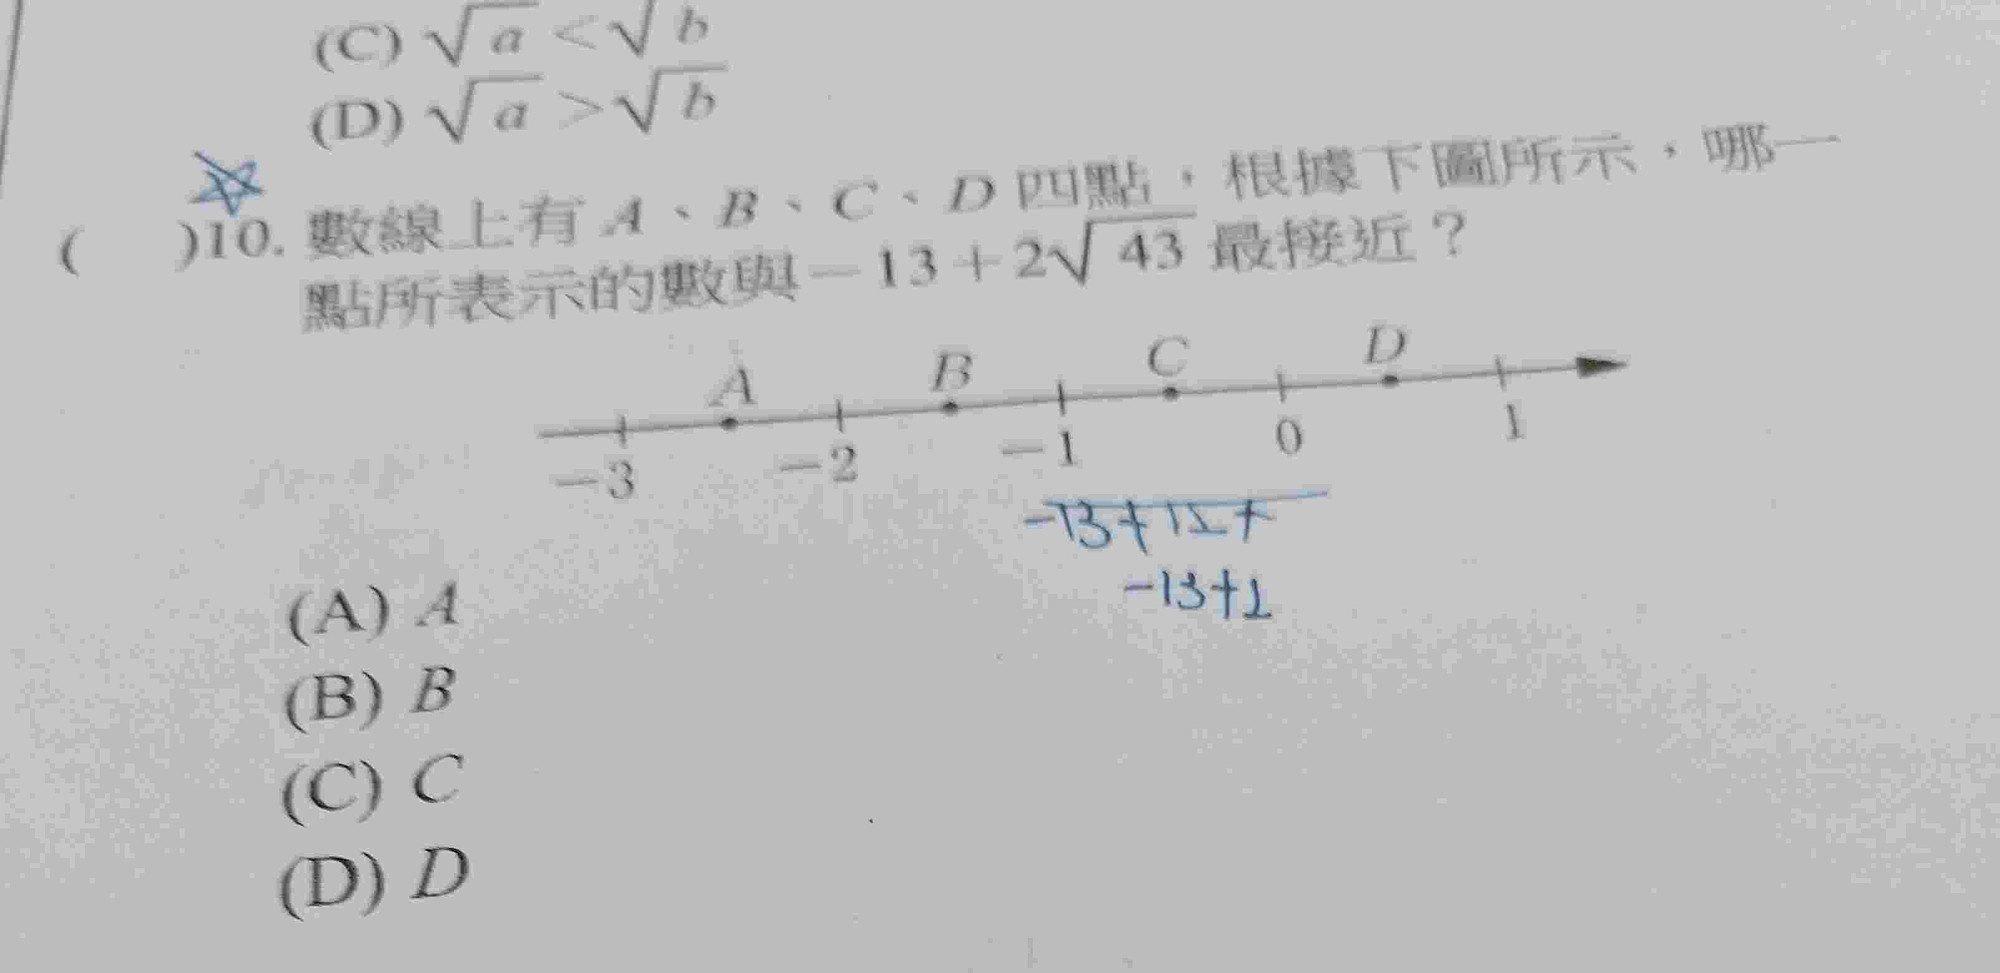 (C) √a < √b
(D) √a > √b
( )10. 數線上有 A、B、C、D 四點，根據下圖所示，哪一
點所表示的數與 −13+2√43 最接近？
A B C D
−3 −2 −1 0 1
−13+12+
−13+2
(A) A
(B) B
(C) C
(D) D